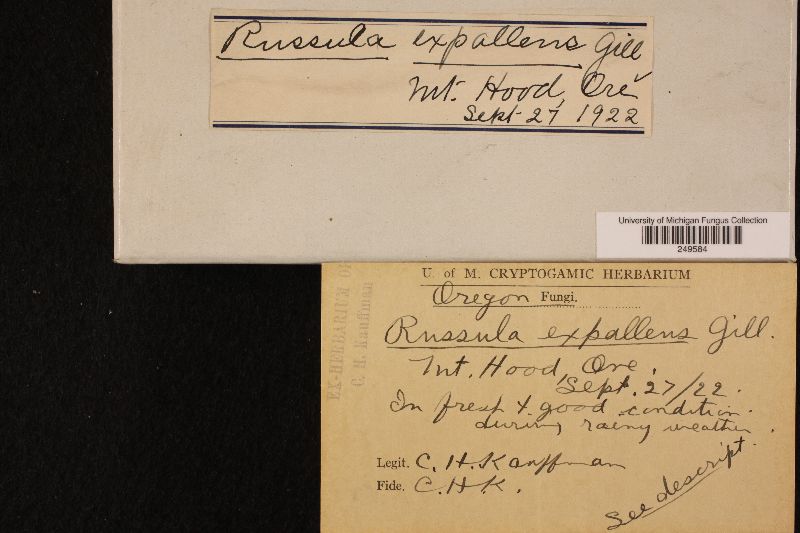 Russula expallens Gill
Mt. Hood, Ore
Sept 27, 1922
University of Michigan Fungus Collection
249584
U. of M. CRYPTOGAMIC HERBARIUM
Oregon Fungi.
Russula expallens Gill.
Mt. Hood, Ore.
Sept. 27/22.
In fresh & good condition
during rainy weather.
Legit. C. H. Kauffman
Fide. C.H.K.
See descript.
EX-HERBARIUM OF
C. H. Kauffman